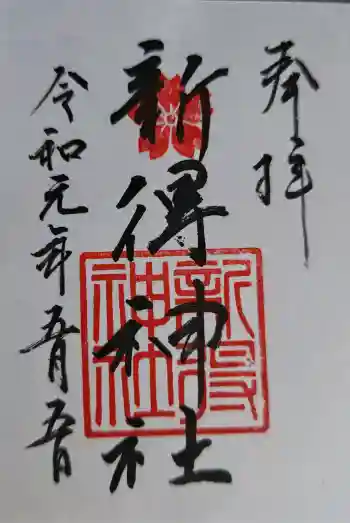 奉拝
新得神社
令和元年五月五日
新得
神社